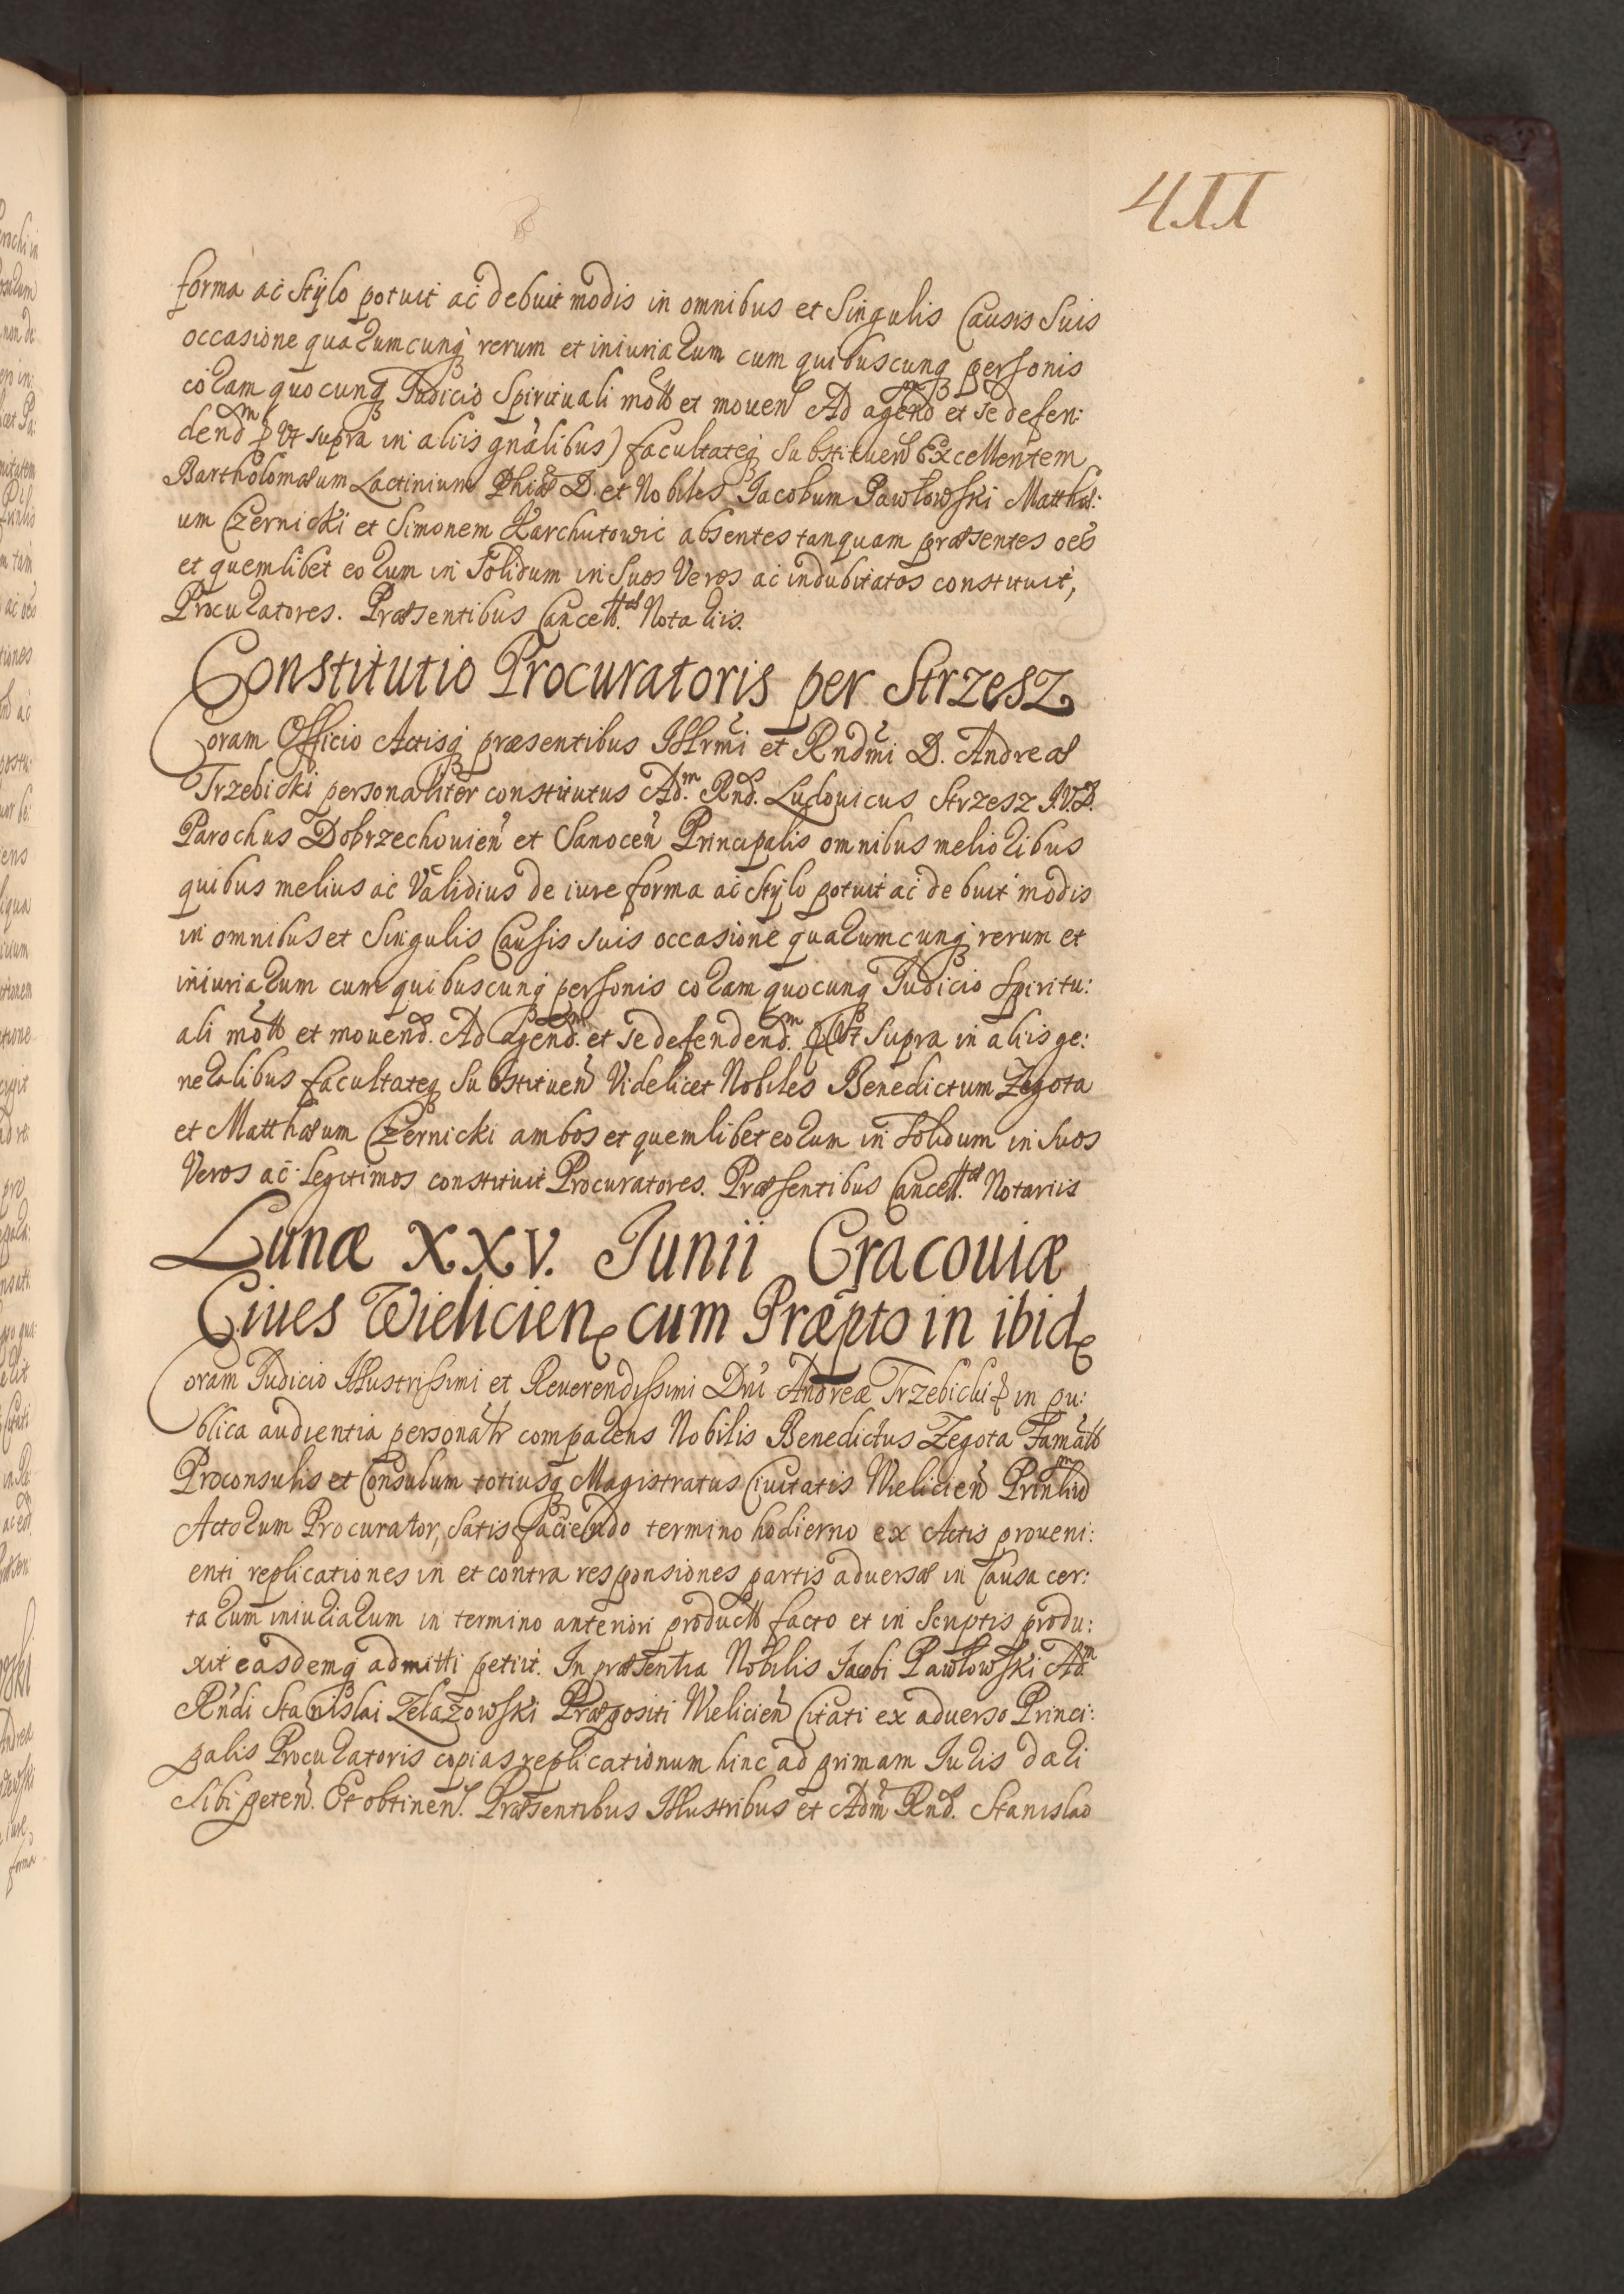 411
forma ac Stylo potuit ac debuit modis in omnibus et Singulis Causis Suis
occasione quarumcunq rerum et iniuriarum cum quibuscunq personis
coram quocunq Judicio Spirituali mott et mouen Ad agend et se defen:
dend Ut supra in aliis gnalibus) facultateq Substituen Excellentem
Bartholomæum Lactinium Phiæ D. et Nobiles Jacobum Pawłowski Matthæ:
um Czernicki et Simonem Karchutowic absentes tanquam præsentes oes
et quemlibet eorum in Solidum in Suos Veros ac indubitatos constituit,
Procuratores. Præsentibus Cancell. Notariis.
Constitutio Procuratoris per Strzesz
Coram Officio Actisq præsentibus Illrmi et Rndmi D. Andreæ
Trzebicki personaliter constitutus Ad.m Rnd. Ludouicus Strzesz J.V.D.
Parochus Dobrzechouien et Sanocen Principalis omnibus melioribus
quibus melius ac Validius de iure forma ac Stylo potuit ac debuit modis
in omnibus et Singulis Causis suis occasione quarumcunq rerum et
iniuriarum cum quibuscunq personis coram quocunq Judicio Spiritu:
ali mott et mouend. Ad agend. et se defendend. Ut Supra in aliis ge:
neralibus facultateq Substituen Videlicet Nobiles Benedictum Zegota
et Matthæum Czernicki ambos et quemlibet eorum in Solidum in Suos
Veros ac Legitimos constituit Procuratores. Præsentibus Cancell. Notariis
Lunæ XXV. Junii Cracouiæ
Ciues Wielicien cum Præpto in ibid
Coram Judicio Illustrissimi et Reuerendissimi Dni Andreæ Trzebicki in pu:
blica audientia personalr comparens Nobilis Benedictus Zegota Famatt
Proconsulis et Consulum totiusq Magistratus Ciuitatis Wielicien Prinlium
Actorum Procurator, Satisfaciendo termino hodierno ex Actis proueni:
enti replicationes in et contra responsiones partis aduersæ in Causa cer:
tarum iniuriarum in termino anteriori productt facto et in Scriptis produ:
xit easdemq admitti petiit. In præsentia Nobilis Jacobi Pawłowski Adm
Rndi Stanislai Zelazowski Præpositi Wielicien Citati ex aduerso Princi:
palis Procuratoris copias replicationum hinc ad primam Juris dari
Sibi peten. Et obtinen. Præsentibus Illustribus et Adm Rnd. Stanislao